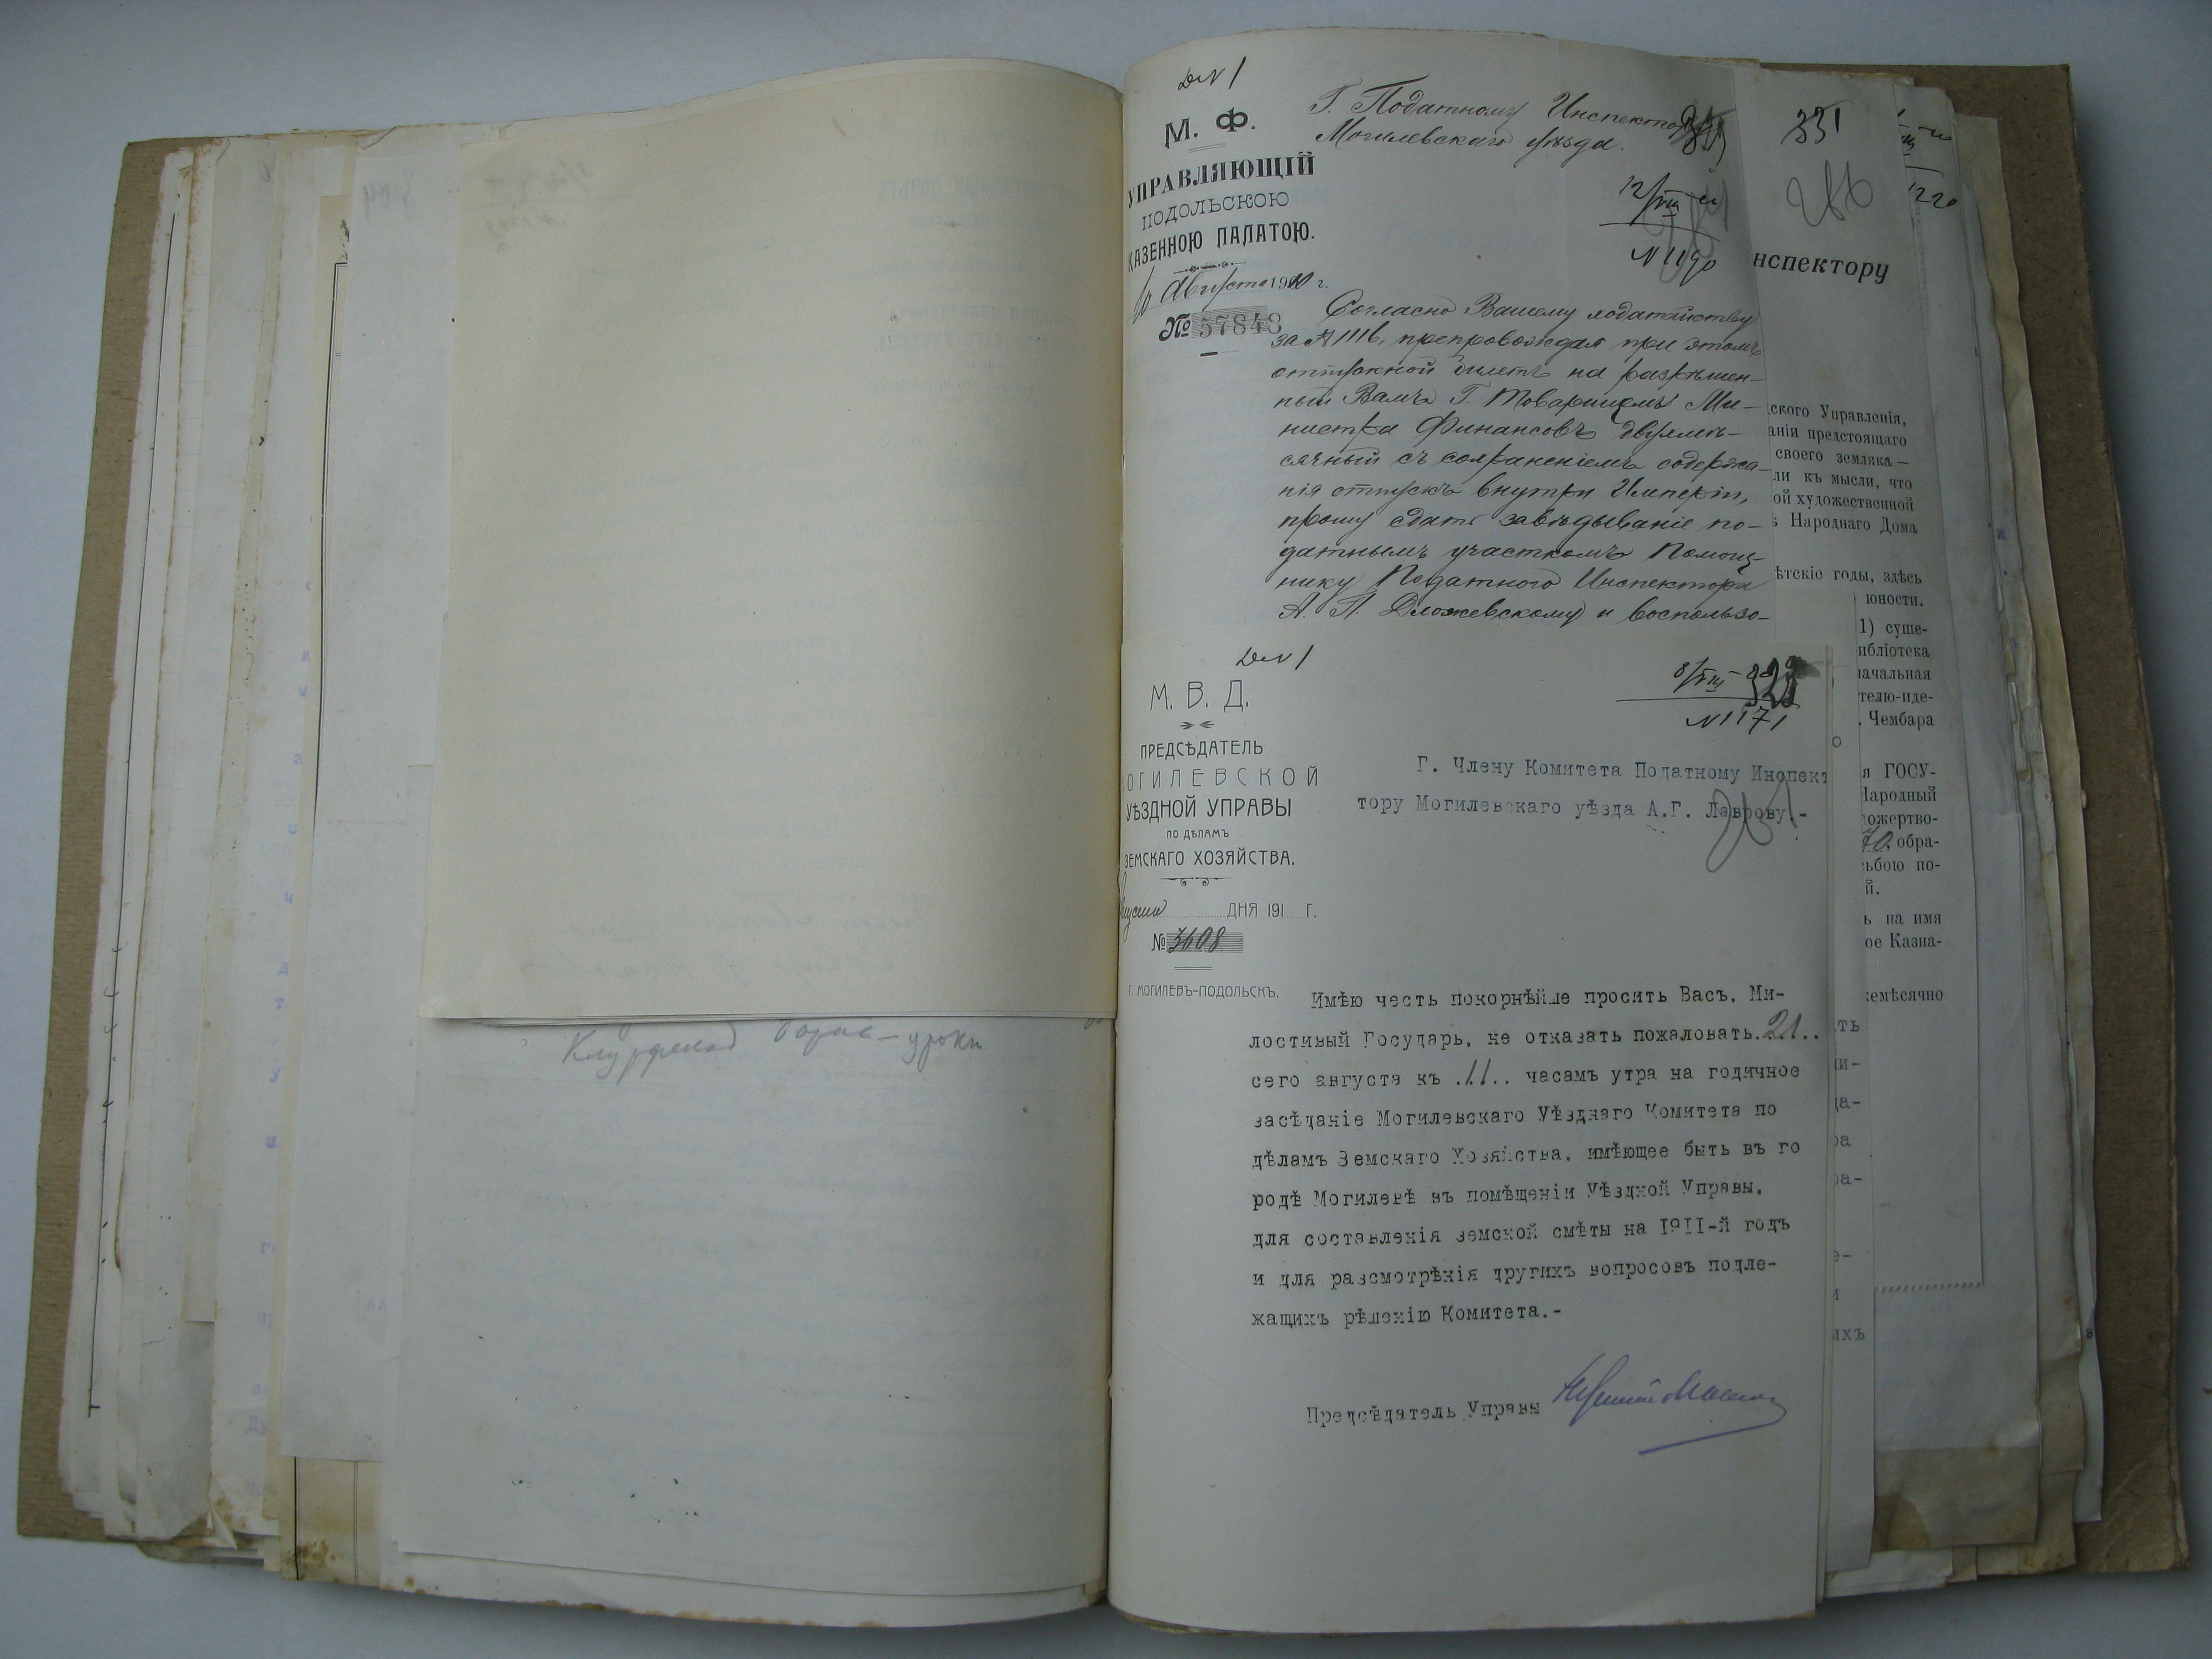 М. Ф.
УПРАВЛЯЮЩІЙ
ПОДОЛЬСКОЮ
КАЗЕННОЮ ПАЛАТОЮ.
Августа 1910 г.
№ 57843
Г. Податному Инспектору
Могилевскаго уѣзда.
12/VIII
N 1190
Согласно Вашему ходатайству
за № 1116, препровождая при этомъ
отпускной билетъ на разрѣшен-
ный Вамъ Г. Товарищемъ Ми-
нистра Финансовъ двухмѣ-
сячный съ сохраненіемъ содержа-
нія отпускъ внутри Имперіи,
прошу сдать завѣдываніе по-
датнымъ участкомъ Помощ-
нику Податного Инспектора
А. П. Дложевскому и воспользо-
М. В. Д.
ПРЕДСѢДАТЕЛЬ
МОГИЛЕВСКОЙ
УѢЗДНОЙ УПРАВЫ
ПО ДѢЛАМЪ
ЗЕМСКАГО ХОЗЯЙСТВА.
ДНЯ 191 Г.
№ 3608
Г. МОГИЛЕВЪ-ПОДОЛЬСКЪ.
8/VIII
N 1171
Г. Члену Комитета Податному Инспек
тору Могилевскаго уѣзда А.Г. Лаврову.-
Имѣю честь покорнѣйше просить Васъ, Ми-
лостивый Государь, не отказать пожаловать 21..
сего августа къ .11.. часамъ утра на годичное
засѣданіе Могилевскаго Уѣзднаго Комитета по
дѣламъ Земскаго Хозяйства, имѣющее быть въ го
родѣ Могилевѣ въ помѣщеніи Уѣздной Управы,
для составленія земской смѣты на 1911-й годъ
и для разсмотрѣнія другихъ вопросовъ подле-
жащихъ рѣшенію Комитета.-
Предсѣдатель Управы
331
нспектору
ского Управленія,
аніи предстоящаго
своего земляка —
ли къ мысли, что
ой художественной
Народнаго Дома
ѣтскіе годы, здѣсь
юности.
1) суще-
ибліотека
ачальная
телю-иде-
. Чембара
я ГОСУ-
Народный
ожертво-
обра-
ьбою по-
й.
ь на имя
ое Казна-
емѣсячно
уроки